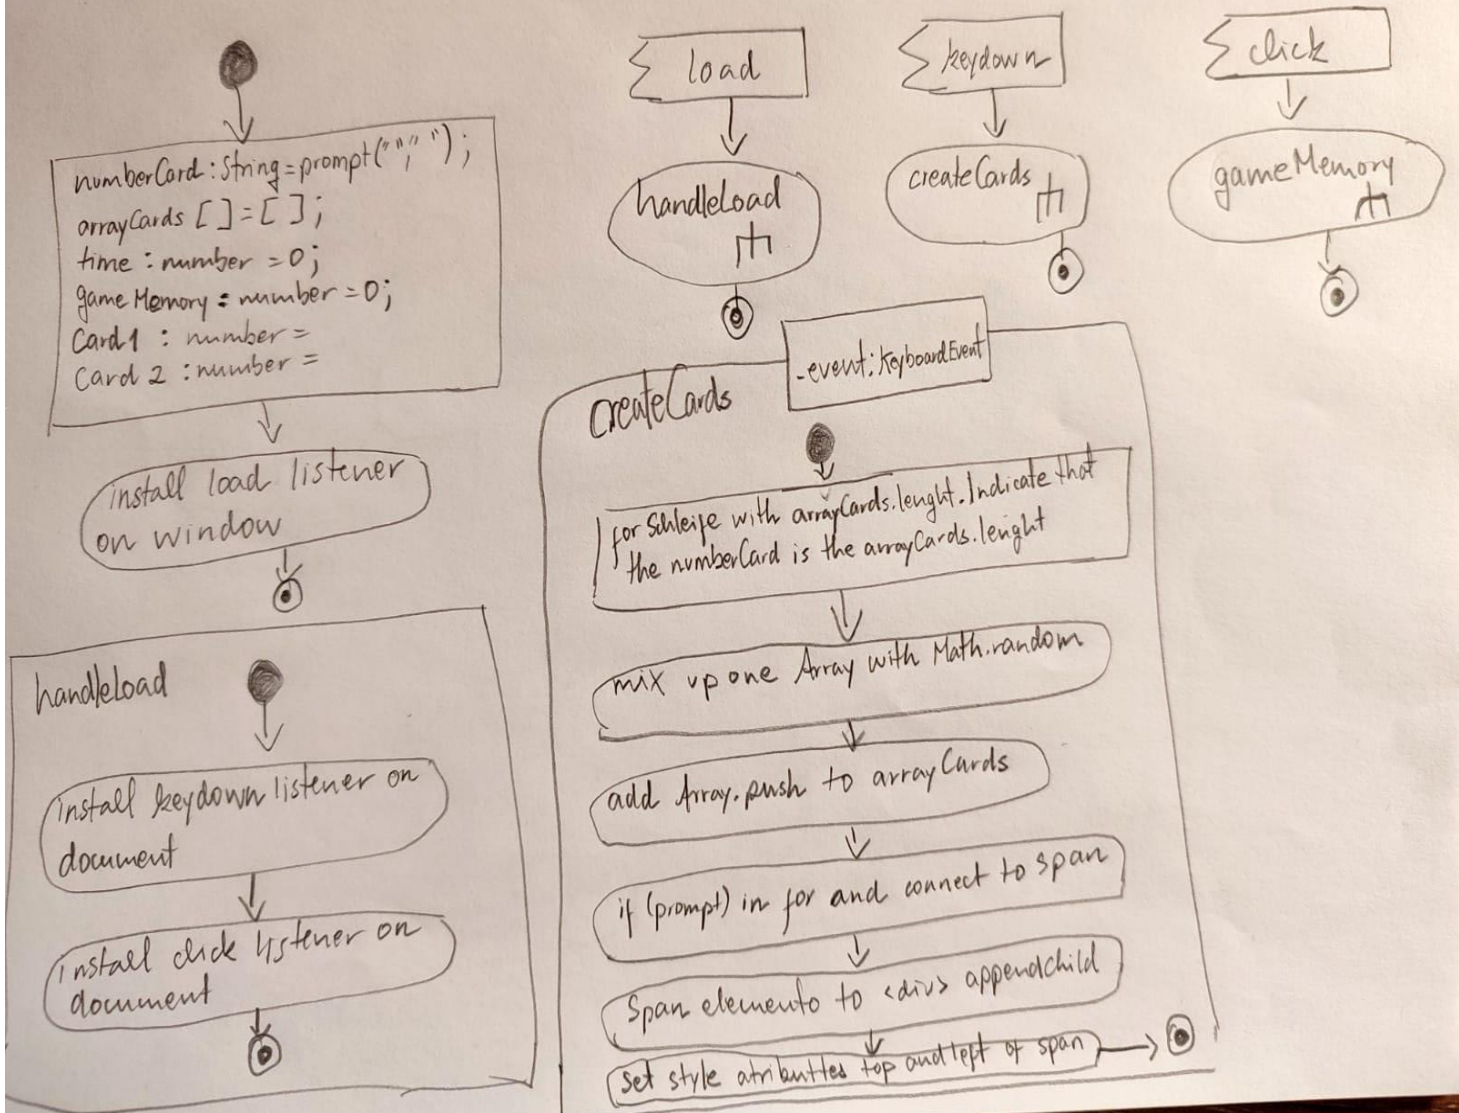 numberCard : String = prompt("", " ");
arrayCards [ ] = [ ];
time : number = 0;
gameMemory : number = 0;
Card1 : number =
Card 2 : number =
install load listener
on window
handleLoad
install keydown listener on
document
install click listener on
document
load
handleLoad
keydown
createCards
click
gameMemory
createCards
_event: KeyboardEvent
for Schleife with arrayCards.lenght. Indicate that
the numberCard is the arrayCards.lenght
mix up one Array with Math.random
add Array.push to arrayCards
if (prompt) in for and connect to span
Span elemento to <div> appendChild
Set style atributtes top and left of span